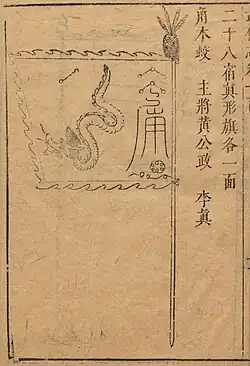 二十八宿眞形旗各一面
角木蛟　主將黃公政　李眞